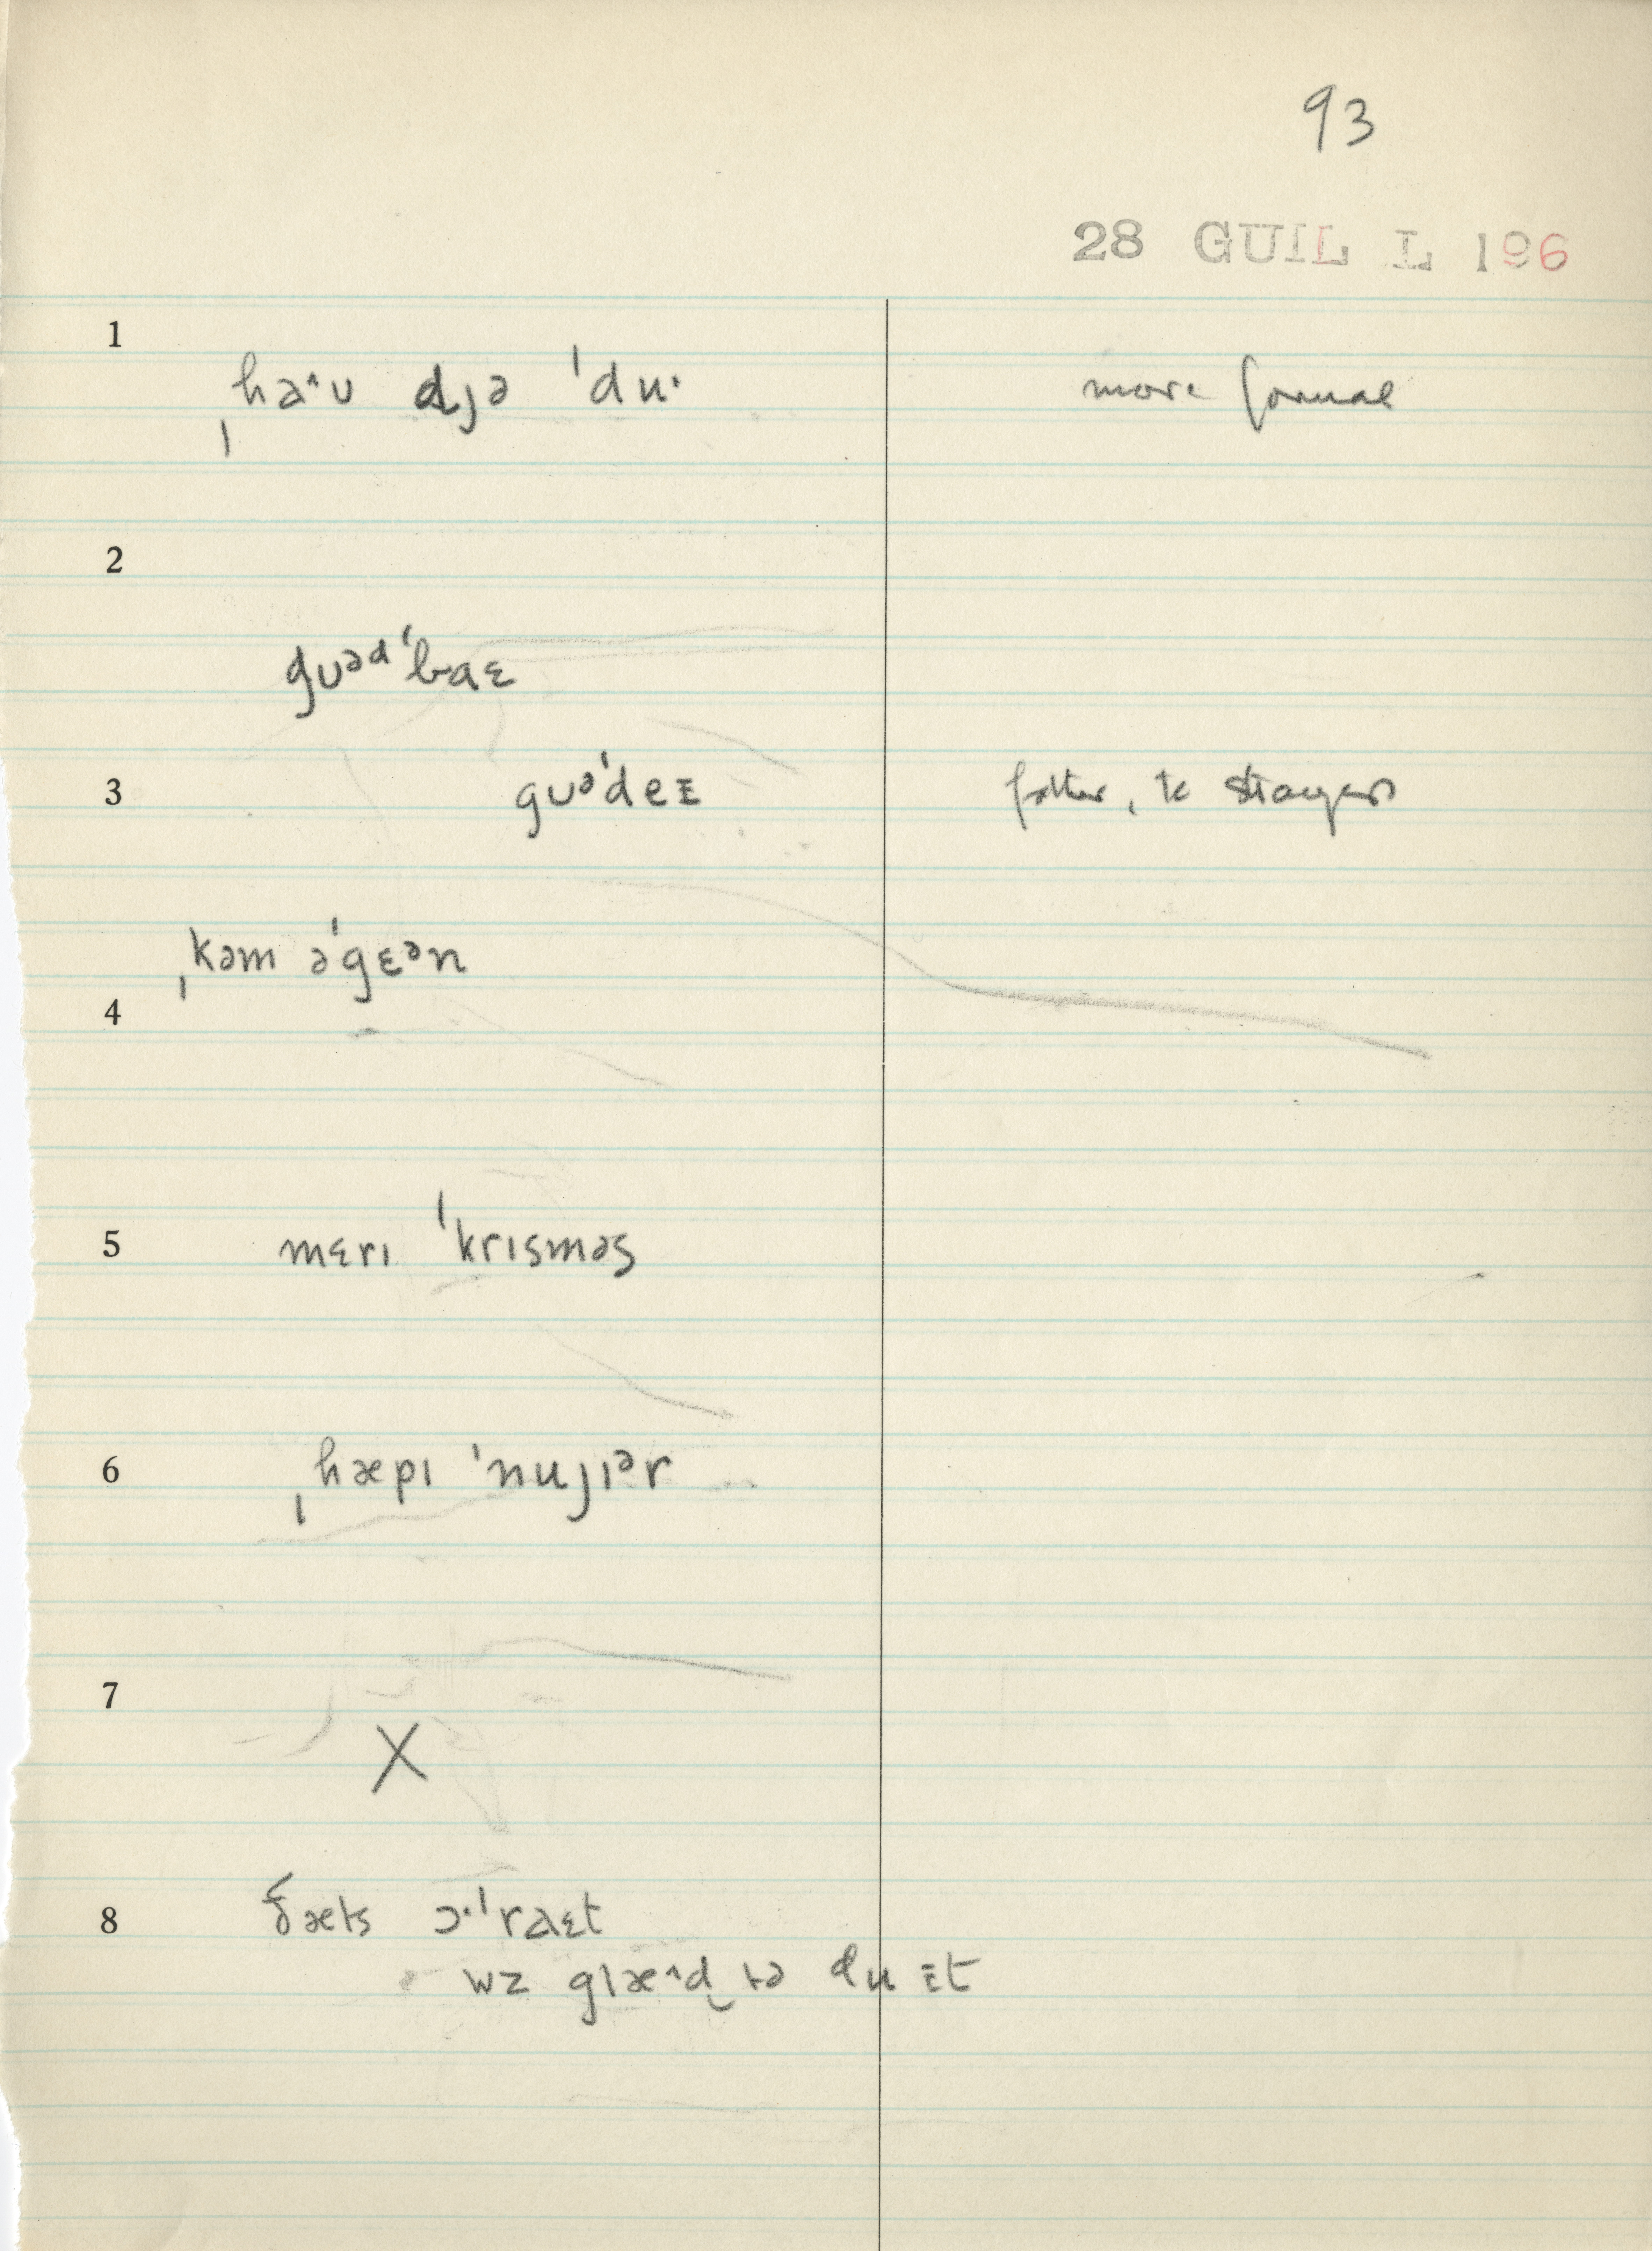 93
28 GUIL L 196
1
ˌhaˆʊ djə ˈduˑ
more formal
2
gʊᵊᵈˈbaɛ
3
gʊᵊˈdeɪ
father, to strangers
ˌkəm əˈgɛᵊn
4
5
mɛrɪ ˈkrɪsməs
6
ˌhæpɪ ˈnujɪᵊr
7
X
8
ðæts ɔˑˈraɛt
wz glæˆd tə du ɪt